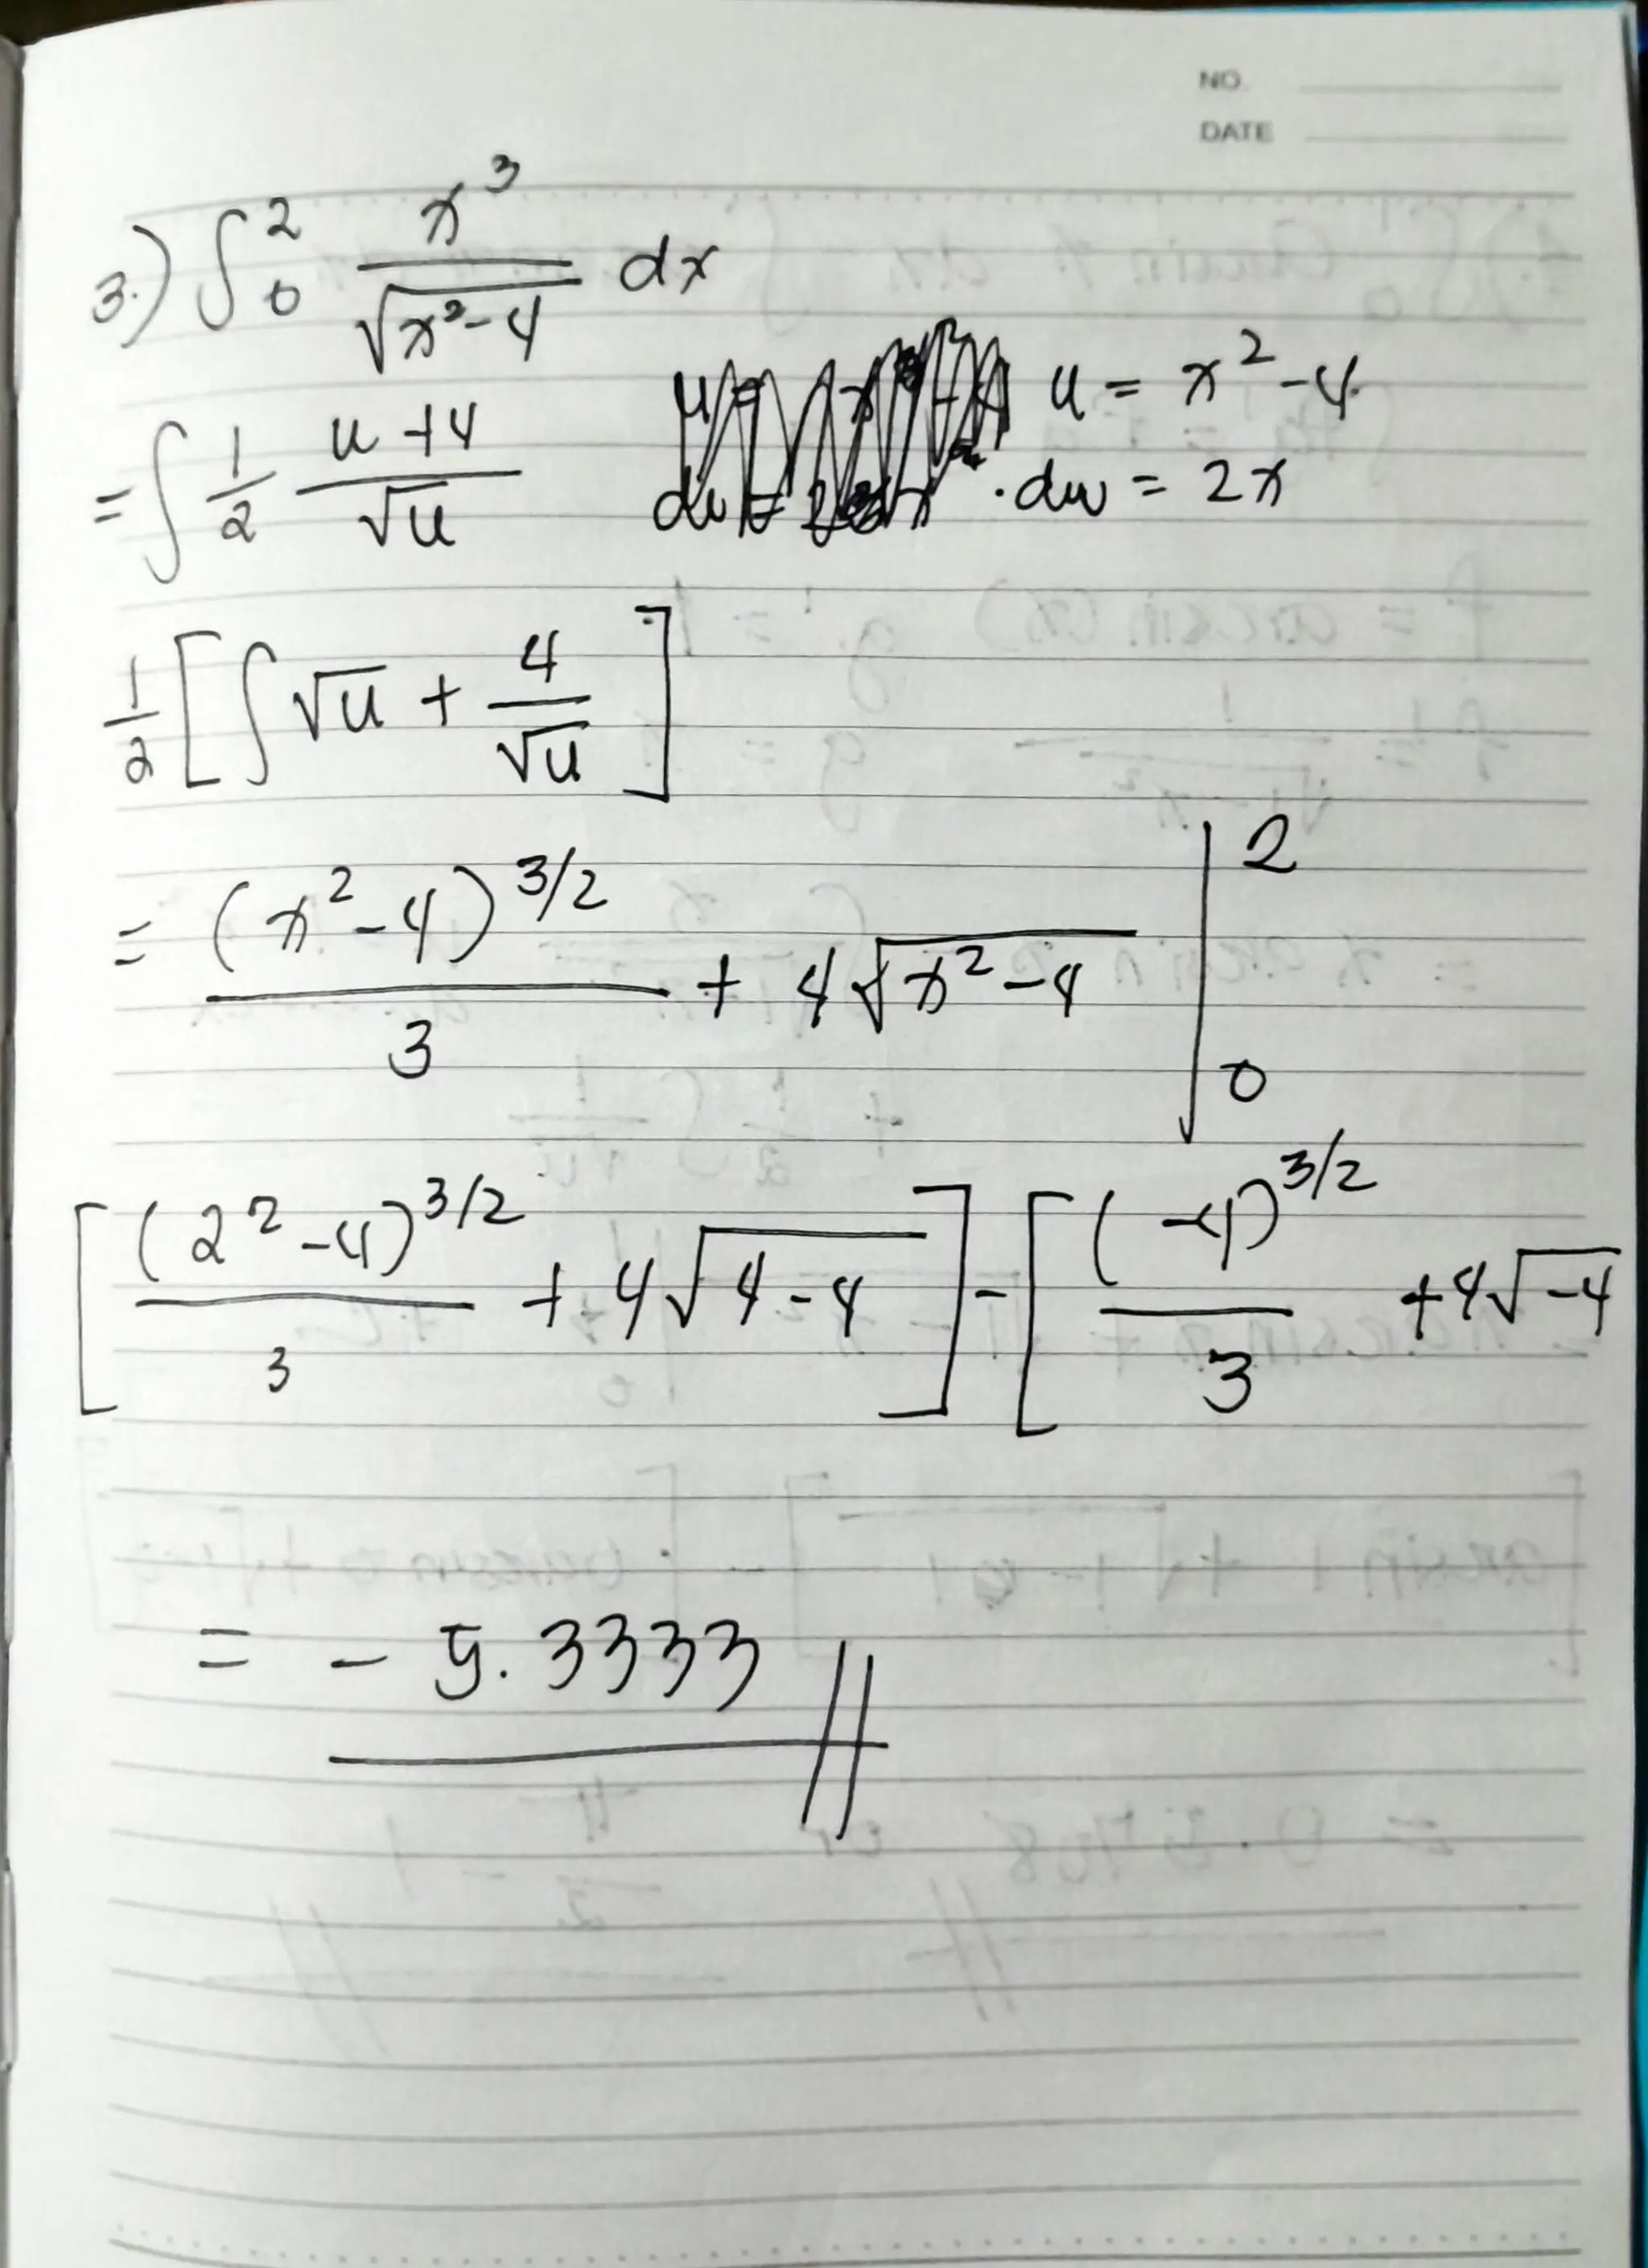 NO.
DATE
3.) ∫₀² x³/√(x²-4) dx
u = x² - 4
= ∫ 1/2 (u+4)/√u
du = 2x
1/2 [∫ √u + 4/√u]
= (x²-4)^(3/2)/3 + 4√(x²-4) |₀²
[(2²-4)^(3/2)/3 + 4√(4-4)] - [(-4)^(3/2)/3 + 4√-4
= - 5.3333 //